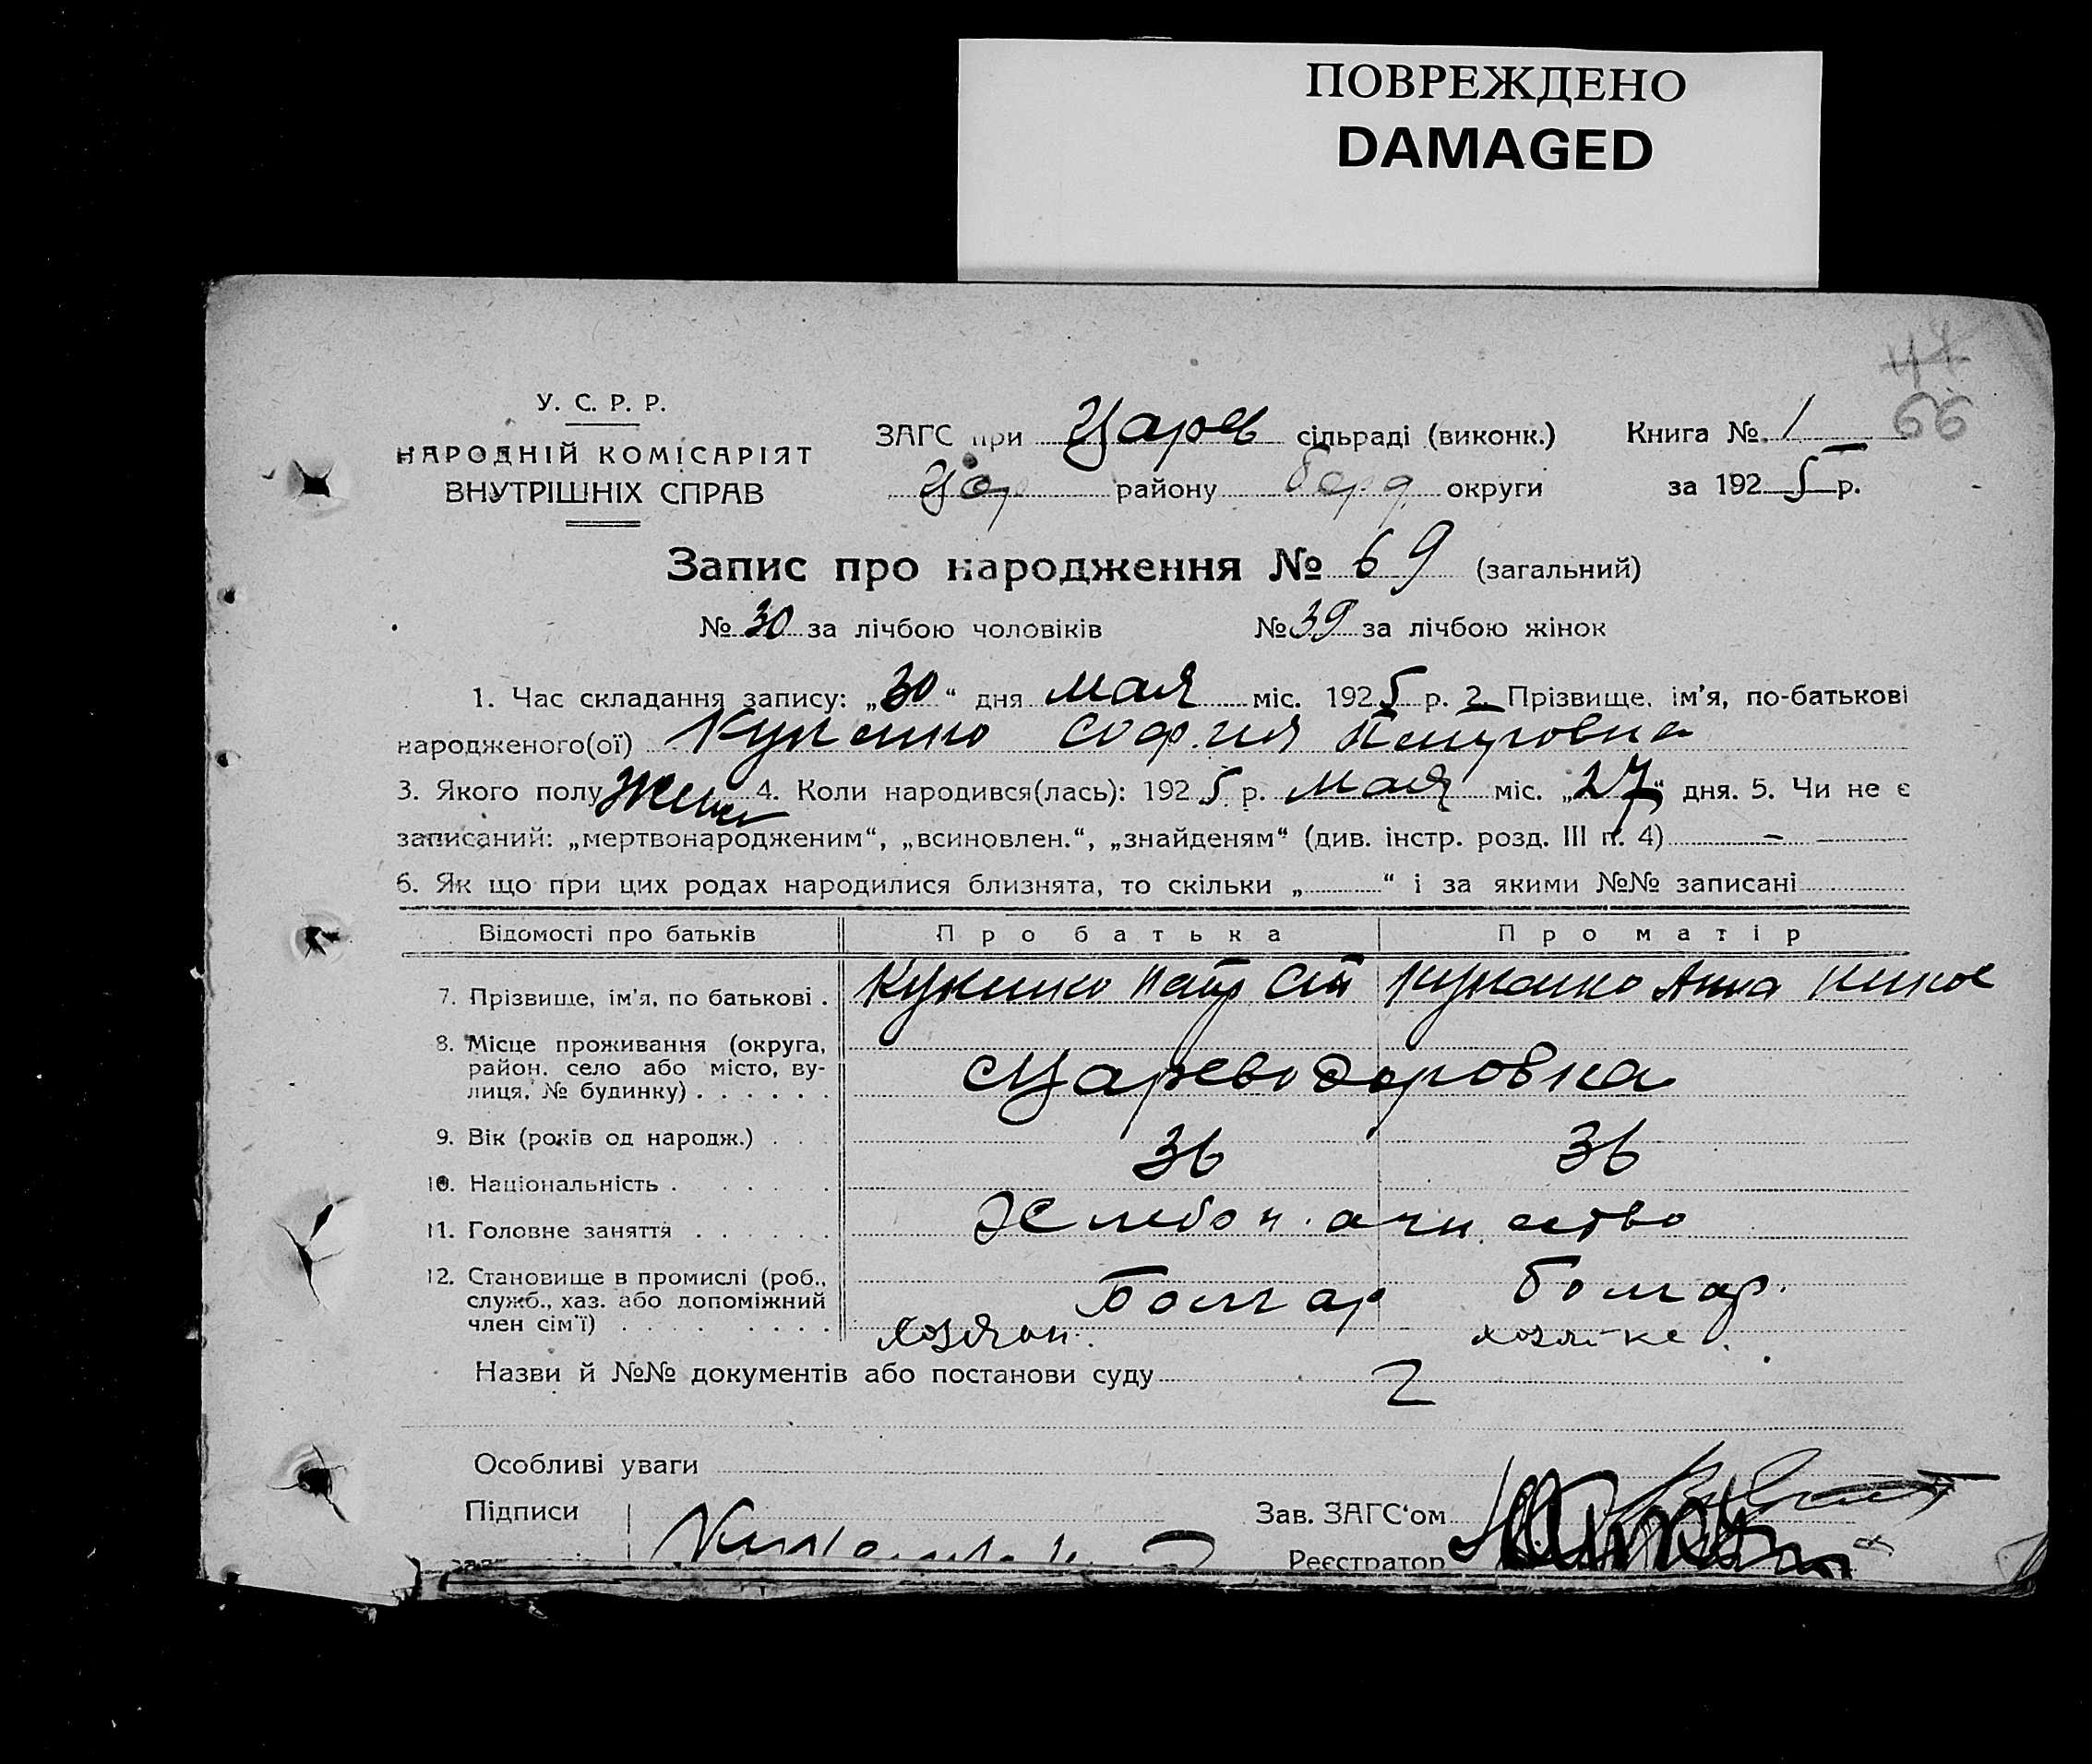 ПОВРЕЖДЕНО
DAMAGED
44
66
У. С. Р. Р.
НАРОДНІЙ КОМІСАРІЯТ
ВНУТРІШНІХ СПРАВ
ЗАГС при Царев сільраді (виконк.)
Цар району округи
Книга №. 1
за 1925 р.
Запис про народження № 69 (загальний)
№ 30 за лічбою чоловіків № 39 за лічбою жінок
1. Час складання запису: „30“ дня мая міс. 1925 р. 2. Прізвище, ім'я, по-батькові
народженого(ої) София Петровна
3. Якого полу жен 4. Коли народився(лась): 1925 р. мая міс. „27“ дня. 5. Чи не є
записаний: „мертвонародженим“, „всиновлен.“, „знайденям“ (див. інстр. розд. III п. 4) –
6. Як що при цих родах народилися близнята, то скільки „ “ і за якими №№ записані
Відомості про батьків Про батька Про матір
7. Прізвище, ім'я, по батькові . Петр Анна
8. Місце проживання (округа,
район, село або місто, ву-
лиця, № будинку) . . . . . . Цареводаровка
9. Вік (років од народж.) . . 36 36
10. Національність . . . . . .
11. Головне заняття . . . . . .
12. Становище в промислі (роб., Болгар болгар.
служб., хаз. або допоміжний
член сім'ї) . . . . . . . хозяин.
Назви й №№ документів або постанови суду 2
Особливі уваги
Підписи Зав. ЗАГС‘ом
Реєстратор